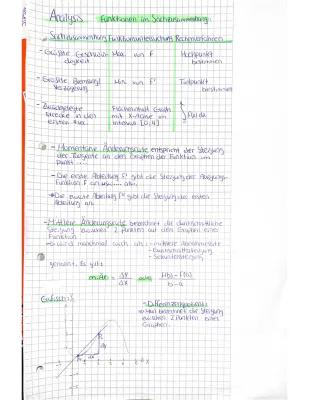 Analysis
Funktionen im Sachzusammenhang
Sachzusammenhang Funktionsuntersuchung Rechenverfahren
- Größte Geschwin- Max. von F Hochpunkt
digkeit bestimmen
- Größte Bremsung/ Min. von F' Tiefpunkt
Verzögerung bestimmen
- Zurückgelegte Flächeninhalt Graph
Strecke in den mit X-Achse im
ersten Intervall [0;4]
- Momentane Änderungsrate entspricht der Steigung
der Tangente an den Graphen der Funktion ... im
Punkt ...
- Die erste Ableitung F' gibt die Steigung der
Funktion F an
→ Die zweite Ableitung F'' gibt die Steigung der ersten
Ableitung an.
- Mittlere Änderungsrate bezeichnet die durchschnittliche
Steigung zwischen 2 Punkten auf dem Graphen einer
Funktion.
wird manchmal auch als: - mittlere Änderungsrate
- Durchschnittssteigung
- Sekantensteigung
genannt. Es gilt:
Δy
Δx
oder
f(b)-f(a)
b-a
Grafisch:
- Differenzenquotient:
Man berechnet die Steigung
zwischen 2 Punkten eines
Graphen.